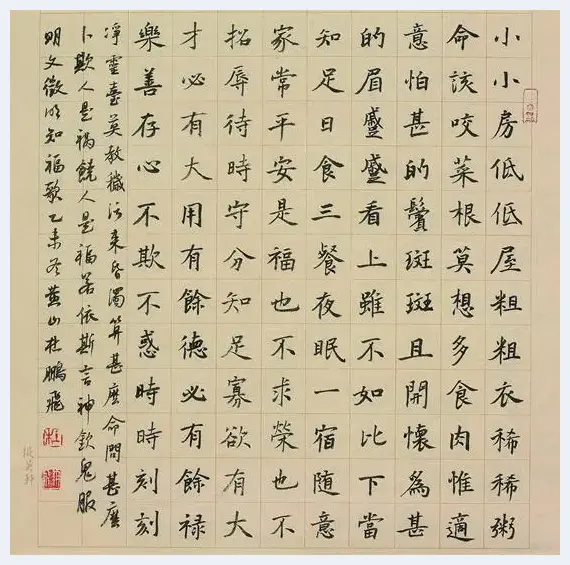 小小房低低屋粗粗衣稀稀粥
命該咬菜根莫想多食肉惟適
意怕甚的鬢斑斑且開懷為甚
的眉蹙蹙看上雖不如比下當
知足日食三餐夜眠一宿随意
家常平安是福也不求榮也不
招辱待時守分知足寡欲有大
才必有大用有餘德必有餘禄
樂善存心不欺不惑時時刻刻
凈靈臺莫教穢污來昏濁算甚麼命問甚麼
卜欺人是禍饒人是福若依斯言神欽鬼服
明文徵明知福歌乙未冬黄山杜鵬飛